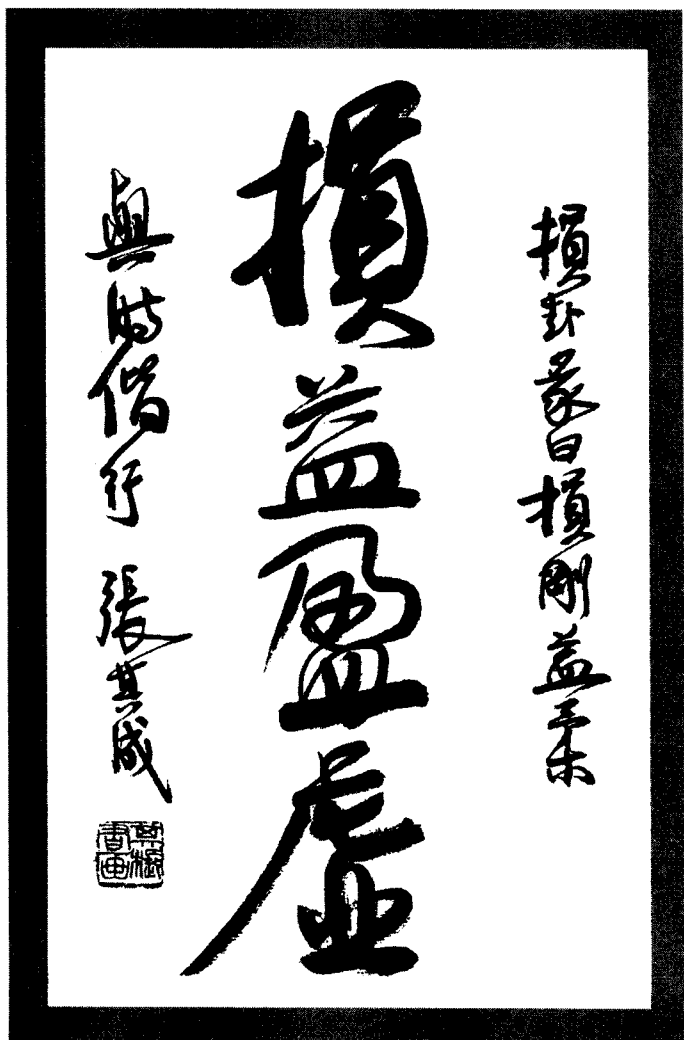 損卦彖曰損剛益柔
損益盈虛
與時偕行 張其成